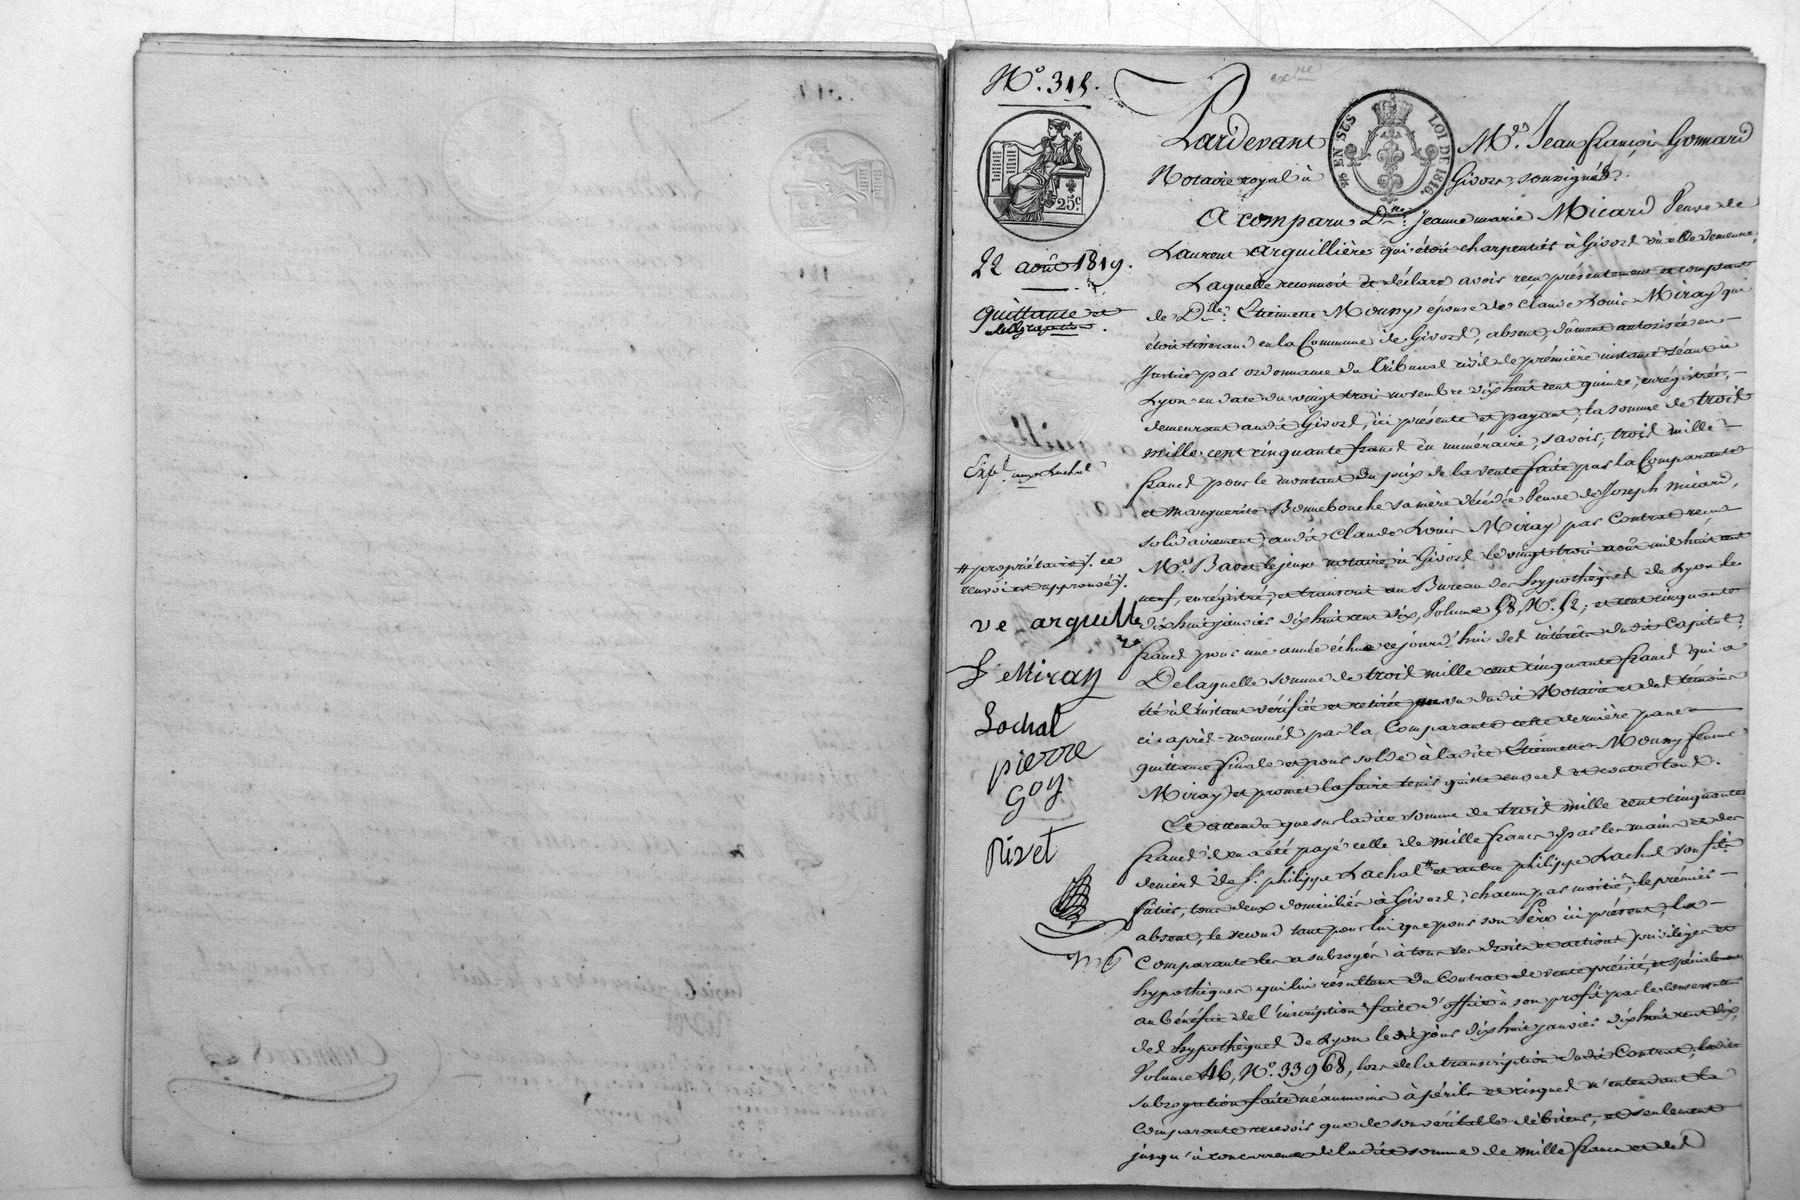 N.° 315.
25.c
EN SUS
LOI DE 1816.
22 août 1819.
quittance et
subrogation.
Exp.
# propriétaire ./. ce
renvoi est approuvé ./.
ve arquilli
re
f e Miray
Lachal
pierre
Goy
Rivet
Pardevant M.e Jean françois Gonnard
Notaire royal à Givors, soussigné.
A comparu D.me Jeanne marie Micard Veuve de
Laurent arquillière qui étoit charpentier à Givors où elle demeure,
Laquelle reconnoit et déclare avoir reçu présentement et comptant
de D.lle Etiennette Mouny épouse de Claude Louis Miray qui
étoit tisserand en la Commune de Givors, absent, dûment autorisée en
Justice par ordonnance du Tribunal civil de première instance séant à
Lyon en date du vingt trois novembre dix huit cent quinze, enrégistrée,
demeurant audit Givors, ici présente et payant, la somme de trois
mille cent cinquante francs en numéraire, savoir, trois mille
francs pour le montant du prix de la vente faite par la Comparante
et Marguerite Bonnebouche sa mère décédée Veuve de Joseph Micard,
solidairement, audit Claude Louis Miray par contrat reçu
M.e Badet le jeune notaire à Givors le vingt trois août mil huit cent
neuf, enrégistré, et transcrit au Bureau des hypothèques de Lyon le
dix huit janvier dix huit cent dix, Volume 58, N.° 52; et cent cinquante
francs pour une année échue ce jourd'hui des intérêts dudit Capital.
De laquelle somme de trois mille cent cinquante francs qui a
été à l'instant vérifiée et retirée au vu dudit Notaire et des témoins
ci-après-nommés par la Comparante cette dernière passe
quittance finale et pour solde à ladite Etiennette Mouny femme
Miray, et promet la faire tenir quitte envers et contre tous.
Et attendu que sur ladite somme de trois mille cent cinquante
francs il en a été payé celle de mille francs par les mains et des
deniers de S.r philippe Lachal # et autre philippe Lachal son fils
, tous deux domiciliés à Givors, chacun par moitié, le premier
absent, le second tant pour lui que pour son Père ici présent, la
Comparante les a subrogés à tous ses droits et actions privilèges et
hypothèques qui lui résultent du contrat de vente précité, et spécialement
au bénéfice de l'inscription faite d'office à son profit par le conservateur
des hypothèques de Lyon le dit jour dix huit janvier dix huit cent dix,
Volume 46, N.° 33968, lors de la transcription dudit Contrat; ladite
subrogation faite néanmoins à périls et risques n'entendant la
Comparante recevoir que de son véritable débiteur, et seulement
jusqu'à concurrence de ladite somme de mille francs et des